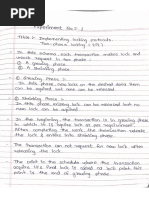 Experiment No:- 1
Title :- Implementing locking protocols.
Two-phase locking (2PL)
In this scheme, each transaction makes lock and
unlock request in two phase :-
① A growing phase
② A shrinking phase
① Growing phase :-
In this phase, new locks on the desired data item
can be acquired but none can be released.
② Shrinking phase :-
In this phase, existing locks can be released but no
new locks can be acquired.
In the beginning, the transaction is in growing phase
in which it acquires lock as per requirement.
After completing the work, the transaction release
the lock & enters shrinking phase.
The transaction can not request for new lock after
releasing the lock.
The point in the schedule where the transaction
acquires its final lock is called as lock point